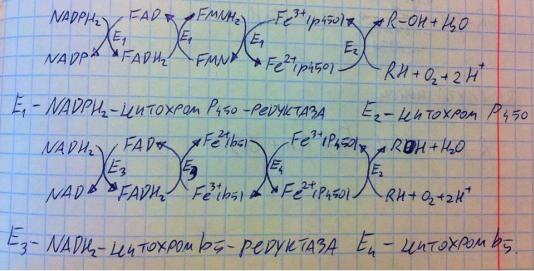 NADPH₂ FAD FMNH₂ Fe³⁺(p450) R-OH + H₂O
E₁ E₁ E₁ E₂
NADP FADH₂ FMN Fe²⁺(p450) RH + O₂ + 2H⁺
E₁ - NADPH₂ - цитохром P450 - редуктаза E₂ - цитохром P450
NADH₂ FAD Fe²⁺(b5) Fe³⁺(P450) ROH + H₂O
E₃ E₃ E₄ E₂
NAD FADH₂ Fe³⁺(b5) Fe²⁺(P450) RH + O₂ + 2H⁺
E₃ - NADH₂ - цитохром b5 - редуктаза E₄ - цитохром b5.